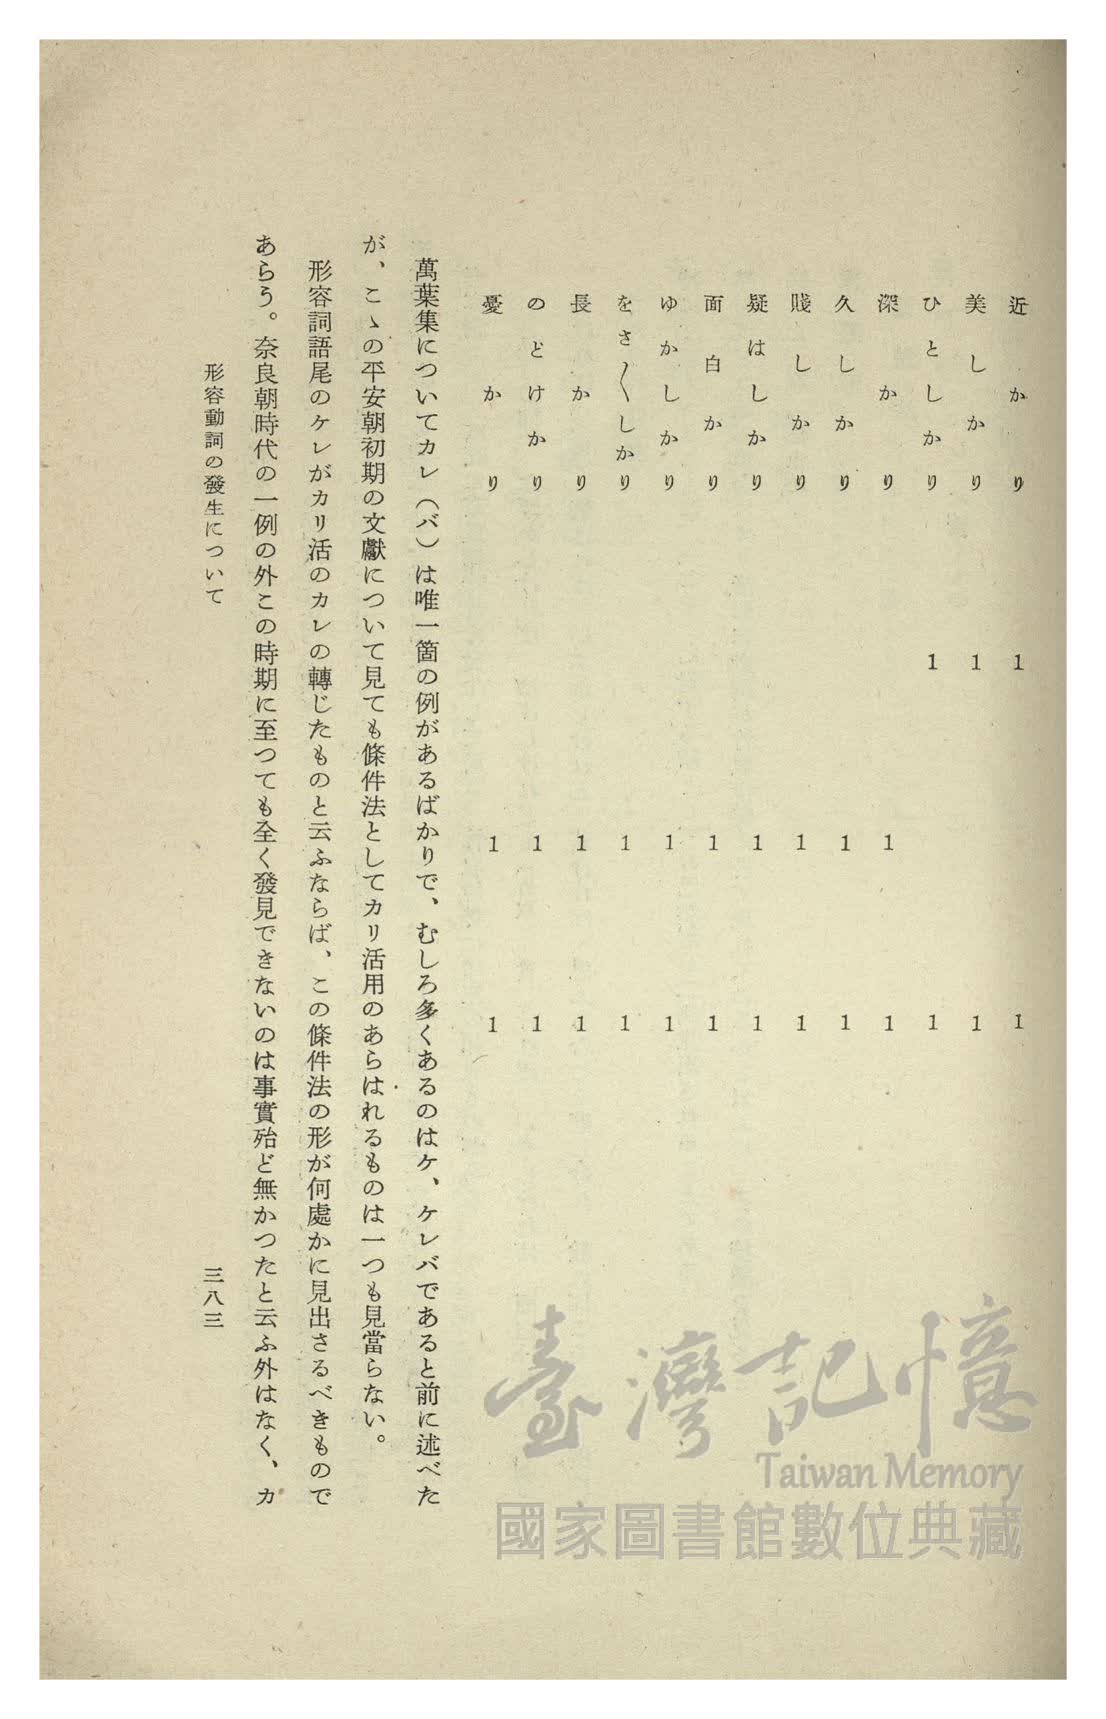 近かり 1 1
美しかり 1 1
ひとしかり 1 1
深かり 1 1
久しかり 1 1
賤しかり 1 1
疑はしかり 1 1
面白かり 1 1
ゆかしかり 1 1
をさ〳〵しかり 1 1
長かり 1 1
のどけかり 1 1
憂かり 1 1
萬葉集についてカレ（バ）は唯一箇の例があるばかりで、むしろ多くあるのはケ、ケレバであると前に述べた
が、こゝの平安朝初期の文獻について見ても條件法としてカリ活用のあらはれるものは一つも見當らない。
形容詞語尾のケレがカリ活のカレの轉じたものと云ふならば、この條件法の形が何處かに見出さるべきもので
あらう。奈良朝時代の一例の外この時期に至つても全く發見できないのは事實殆ど無かつたと云ふ外はなく、カ
形容動詞の發生について
三八三
臺灣記憶
Taiwan Memory
國家圖書館數位典藏